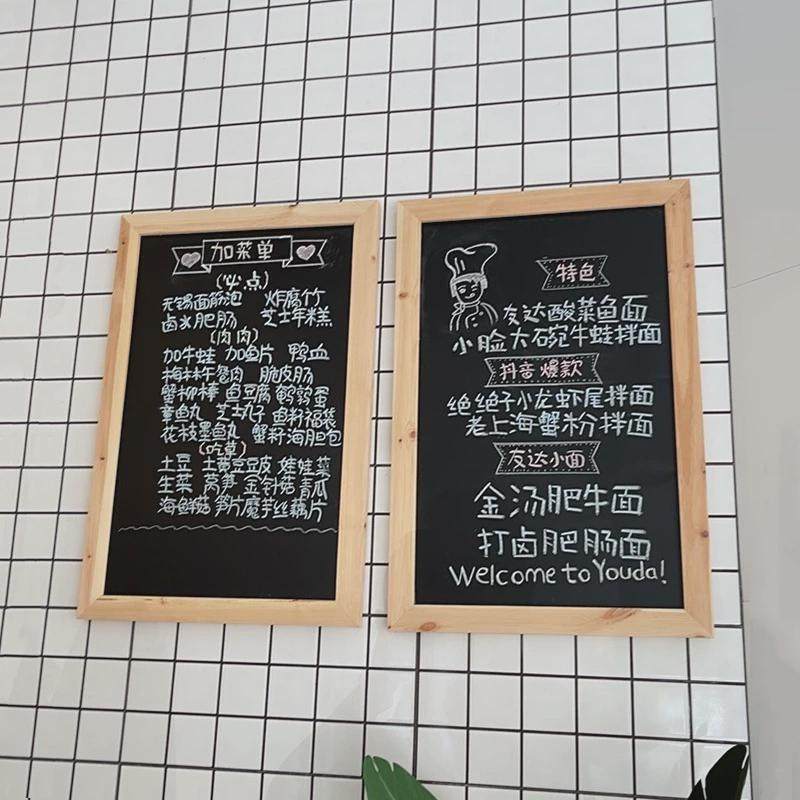 加菜单
(必点)
无锡面筋泡 炸腐竹
卤水肥肠 芝士年糕
(肉肉)
加牛蛙 加鱼片 鸭血
梅林午餐肉 脆皮肠
蟹柳棒 鱼豆腐 鹌鹑蛋
章鱼丸 芝士丸子 鱼籽福袋
花枝墨鱼丸 蟹籽海胆包
(吃草)
土豆 土黄豆豆皮 娃娃菜
生菜 莴笋 金针菇 青瓜
海鲜菇 笋片 魔芋丝 藕片
特色
友达酸菜鱼面
小脸大碗牛蛙拌面
抖音爆款
绝绝子小龙虾尾拌面
老上海蟹粉拌面
友达小面
金汤肥牛面
打卤肥肠面
Welcome to Youda!